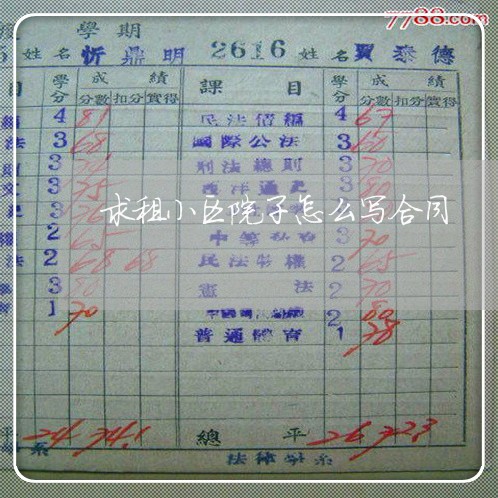 7788.com
學期
姓名 忻鼎明 2616 姓名 賈泰德
目 學分 成績 課目 學分 成績
分數 扣分 實得 分數 扣分 實得
4 81 民法債編 4 67
法 3 68 國際公法 3 60
3 刑法總則 3 70
3 75 西洋通史 3 80
求租小区院子怎么写合同
2 65 3 70
法 2 68 68 民法物權 2 65
3 80 憲法 2 70
1 70 2 80
普通體育 1 78
平 24 74.1 總平 26 72.3
系 法律學系